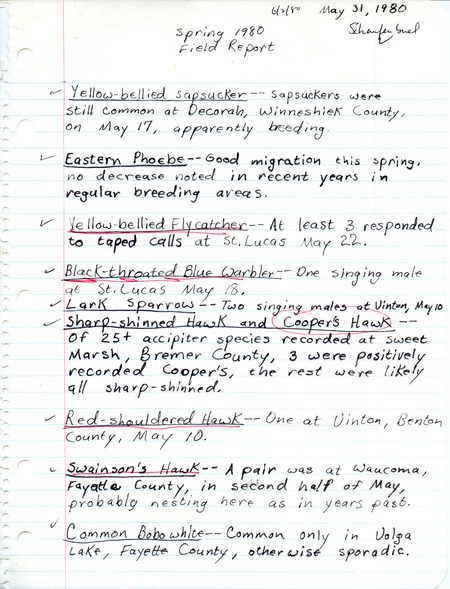 6/2/80 May 31, 1980
Spring 1980
Field Report
✓ Yellow-bellied Sapsucker-- Sapsuckers were
still common at Decorah, Winneshiek County,
on May 17, apparently breeding.
✓ Eastern Phoebe--Good migration this spring,
no decrease noted in recent years in
regular breeding areas.
✓ Yellow-bellied Flycatcher-- At least 3 responded
to taped calls at St. Lucas May 22.
✓ Black-throated Blue Warbler-- One singing male
at St. Lucas May 18.
✓ Lark Sparrow-- Two singing males at Vinton, May 10
✓ Sharp-shinned Hawk and Cooper's Hawk --
Of 25+ accipiter species recorded at Sweet
Marsh, Bremer County, 3 were positively
recorded Cooper's, the rest were likely
all sharp-shinned.
✓ Red-shouldered Hawk-- One at Vinton, Benton
County, May 10.
✓ Swainson's Hawk-- A pair was at Waucoma,
Fayette County, in second half of May,
probably nesting here as in years past.
✓ Common Bobowhite-- Common only in Volga
Lake, Fayette County, otherwise sporadic.